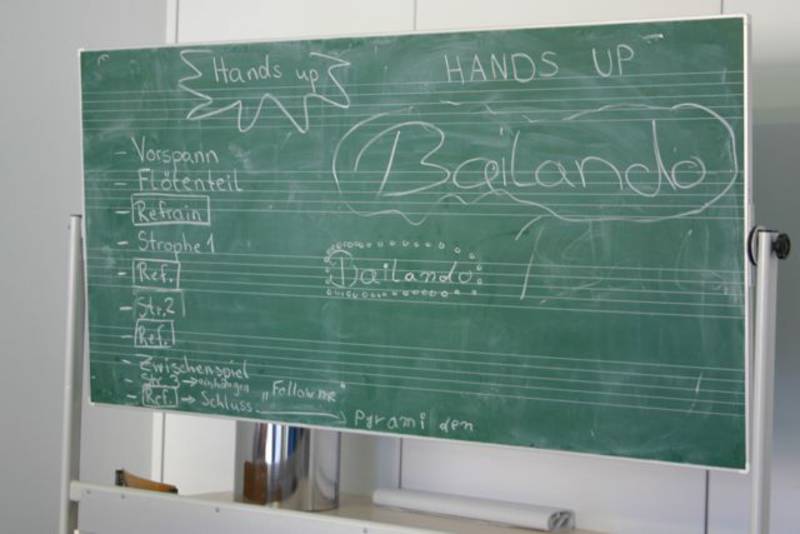 Hands up
HANDS UP
Bailando
- Vorspann
- Flötenteil
- Refrain
- Strophe 1
- Ref.
- Str. 2
- Ref.
- Zwischenspiel
- Str. 3 → einhängen
- Ref. → Schluss „Follow me"
→ Pyramiden
Bailando